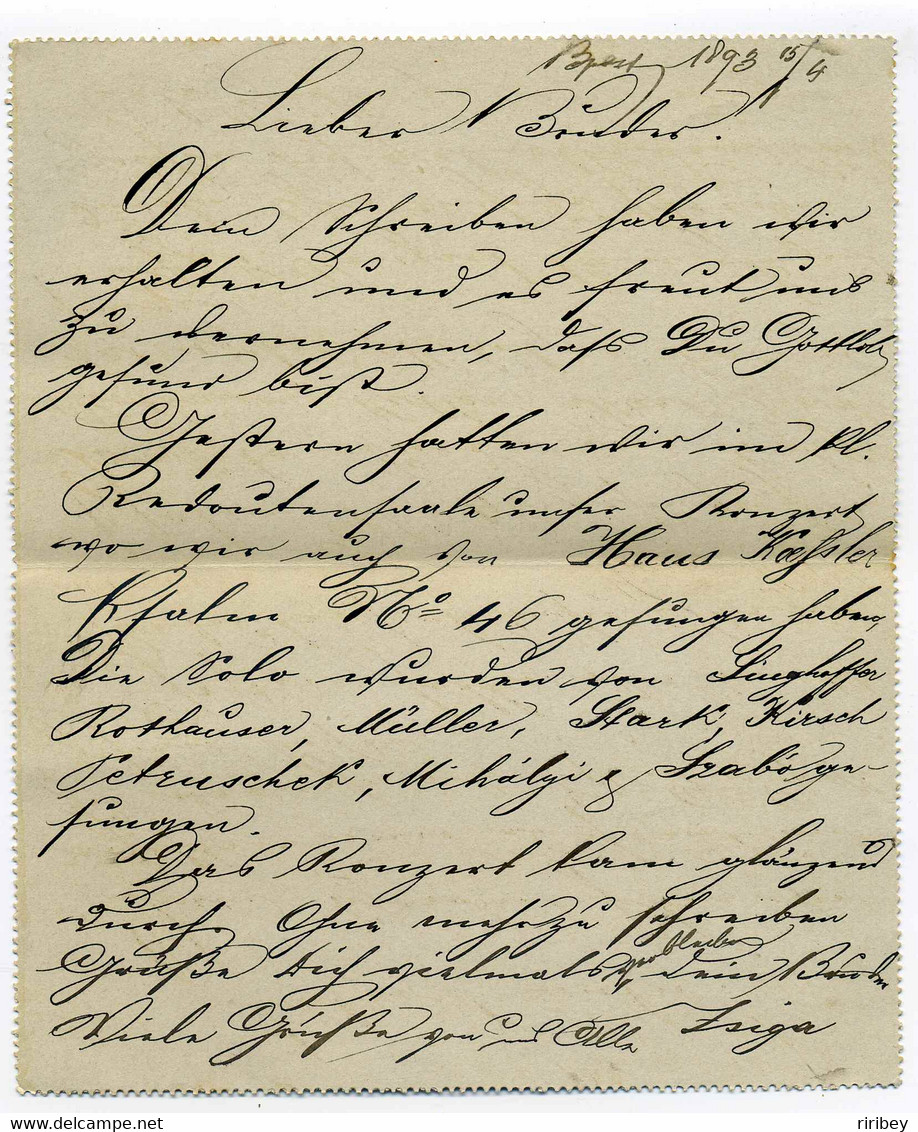 Bpest 1893 15/4
Lieber Bruder!
Dein Schreiben haben wir
erhalten und es freut uns
zu vernehmen, dass Du Gottlob
gesund bist.
Gestern hatten wir im kl.
Redoutensaale unser Konzert
wo wir auch von Hans Kœssler
Psalm No 46 gesungen haben,
Die Solo wurden von Singhoffer
Rothauser, Müller, Stark, Kirsch
Petruschek, Mihályi & Szabo ge-
sungen.
Das Konzert kam glänzend
durch. Ohne mehr zu schreiben
Grüße Dich vielmals verbleibe Dein Bruder
Viele Grüße von uns Alle Zsiga
ribey